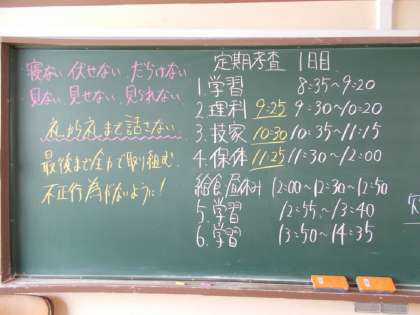 寝ない 伏せない だらけない
見ない 見せない 見られない
礼から礼まで話さない
最後まで全力で取り組む
不正行為がないように!
定期考査 1日目
1.学習 8:35～9:20
2.理科 9:25 9:30～10:20
3.技家 10:30 10:35～11:15
4.保体 11:25 11:30～12:00
給食 昼休み 12:00～12:30～12:50
5.学習 12:55～13:40
6.学習 13:50～14:35